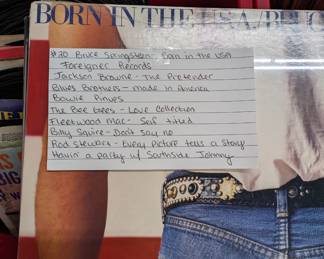 BORN IN THE U.S.A./BRUC
#20 Bruce Springsteen: Born in the USA
Foreigner Records
Jackson Browne - The Pretender
Blues Brothers - made in America
Bowie Pinups
The Bee Gees - Love Collection
Fleetwood Mac - Self titled
Billy Squire - Don't say no
Rod Stewart - Every Picture tells a Story
Havin' a party w/ Southside Johnny